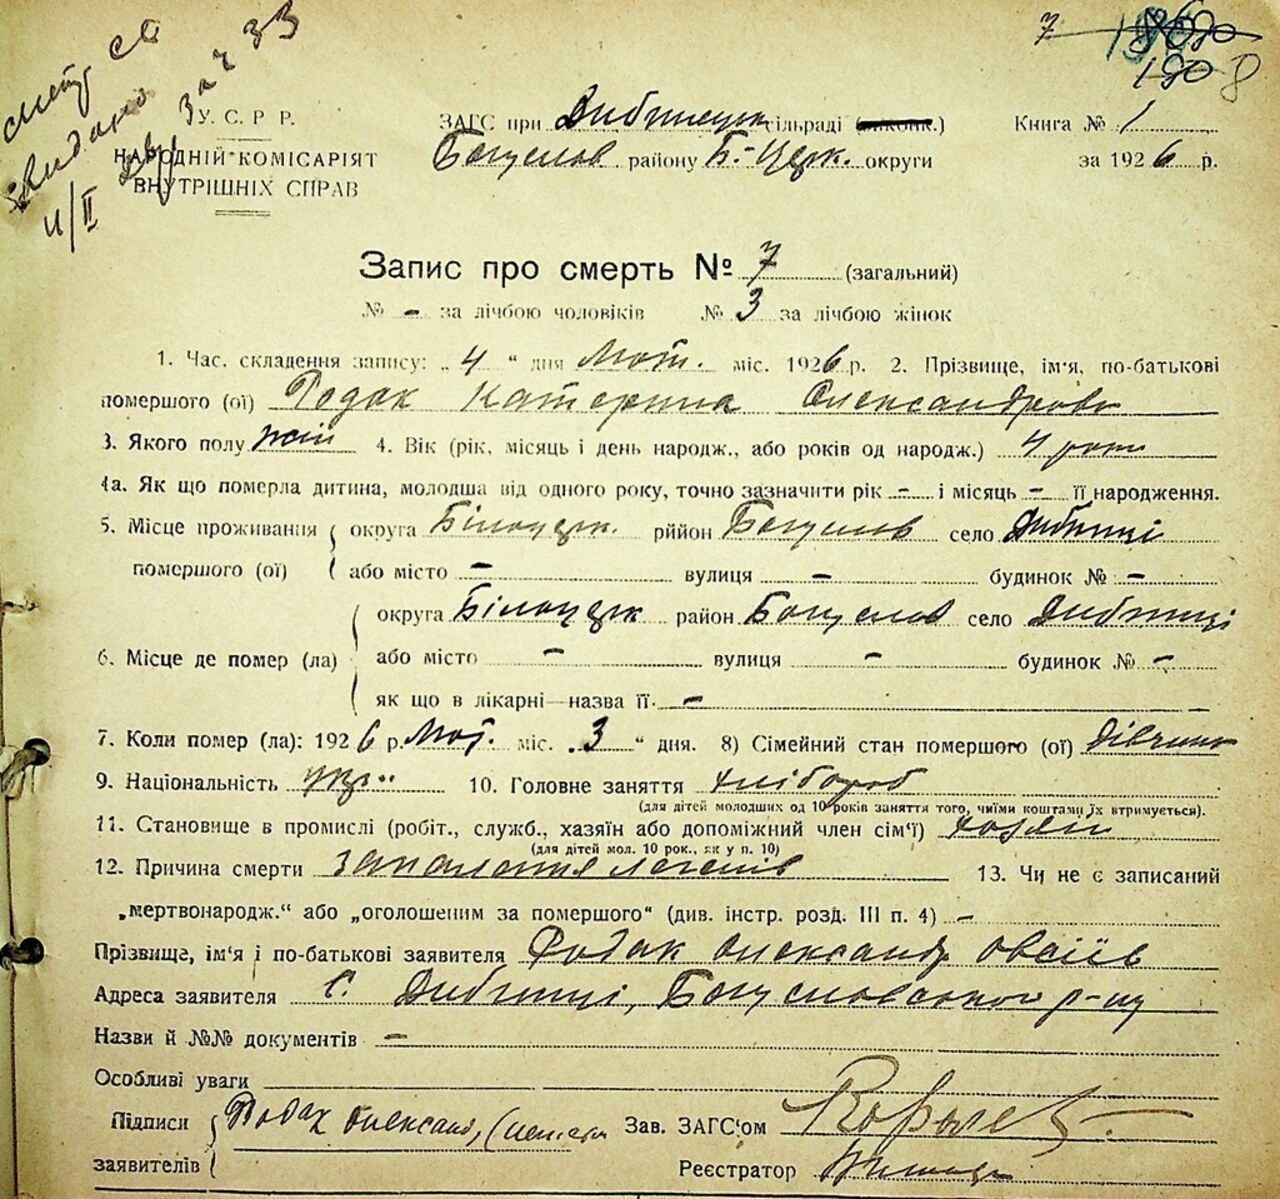 7 1808
У. С. Р. Р.
НАРОДНІЙ КОМІСАРІЯТ
ВНУТРІШНІХ СПРАВ
ЗАГС при Дибинецьк сільраді Книга № 1
Богуслов району Б.-Церк. округи за 1926 р.
Запис про смерть № 7 (загальний)
№ - за лічбою чоловіків № 3 за лічбою жінок
1. Час. складення запису: „4“ дня Лют. міс. 1926 р. 2. Прізвище, ім'я, по-батькові
помершого (ої) Родак Катерина Олександрова
3. Якого полу жін 4. Вік (рік, місяць і день народж., або років од народж.) 4 роки
4а. Як що померла дитина, молодша від одного року, точно зазначити рік - і місяць - її народження.
5. Місце проживання округа Білоцерк. рйійон Богуслов село Дибинці
помершого (ої) або місто - вулиця - будинок № -
округа Білоцерк район Богуслов село Дибинці
6. Місце де помер (ла) або місто - вулиця - будинок № -
як що в лікарні—назва її. -
7. Коли помер (ла): 1926 р. Лют. міс. „3“ дня. 8) Сімейний стан помершого (ої) дівчина
9. Національність укр.. 10. Головне заняття хлібороб
(для дітей молодших од 10 років заняття того, чиїми коштами їх втримується).
11. Становище в промислі (робіт., служб., хазяїн або допоміжний член сім'ї) хазяїн
(для дітей мол. 10 рок., як у п. 10)
12. Причина смерти запалення легенів 13. Чи не є записаний
„мертвонародж.“ або „оголошеним за помершого“ (див. інстр. розд. III п. 4) -
Прізвище, ім'я і по-батькові заявителя Родак Олександр Овсіїв
Адреса заявителя с. Дибинці, Богуславського р-ну
Назви й №№ документів -
Особливі уваги
Підписи Родак Олександ, Зав. ЗАГС'ом
заявителів Реєстратор